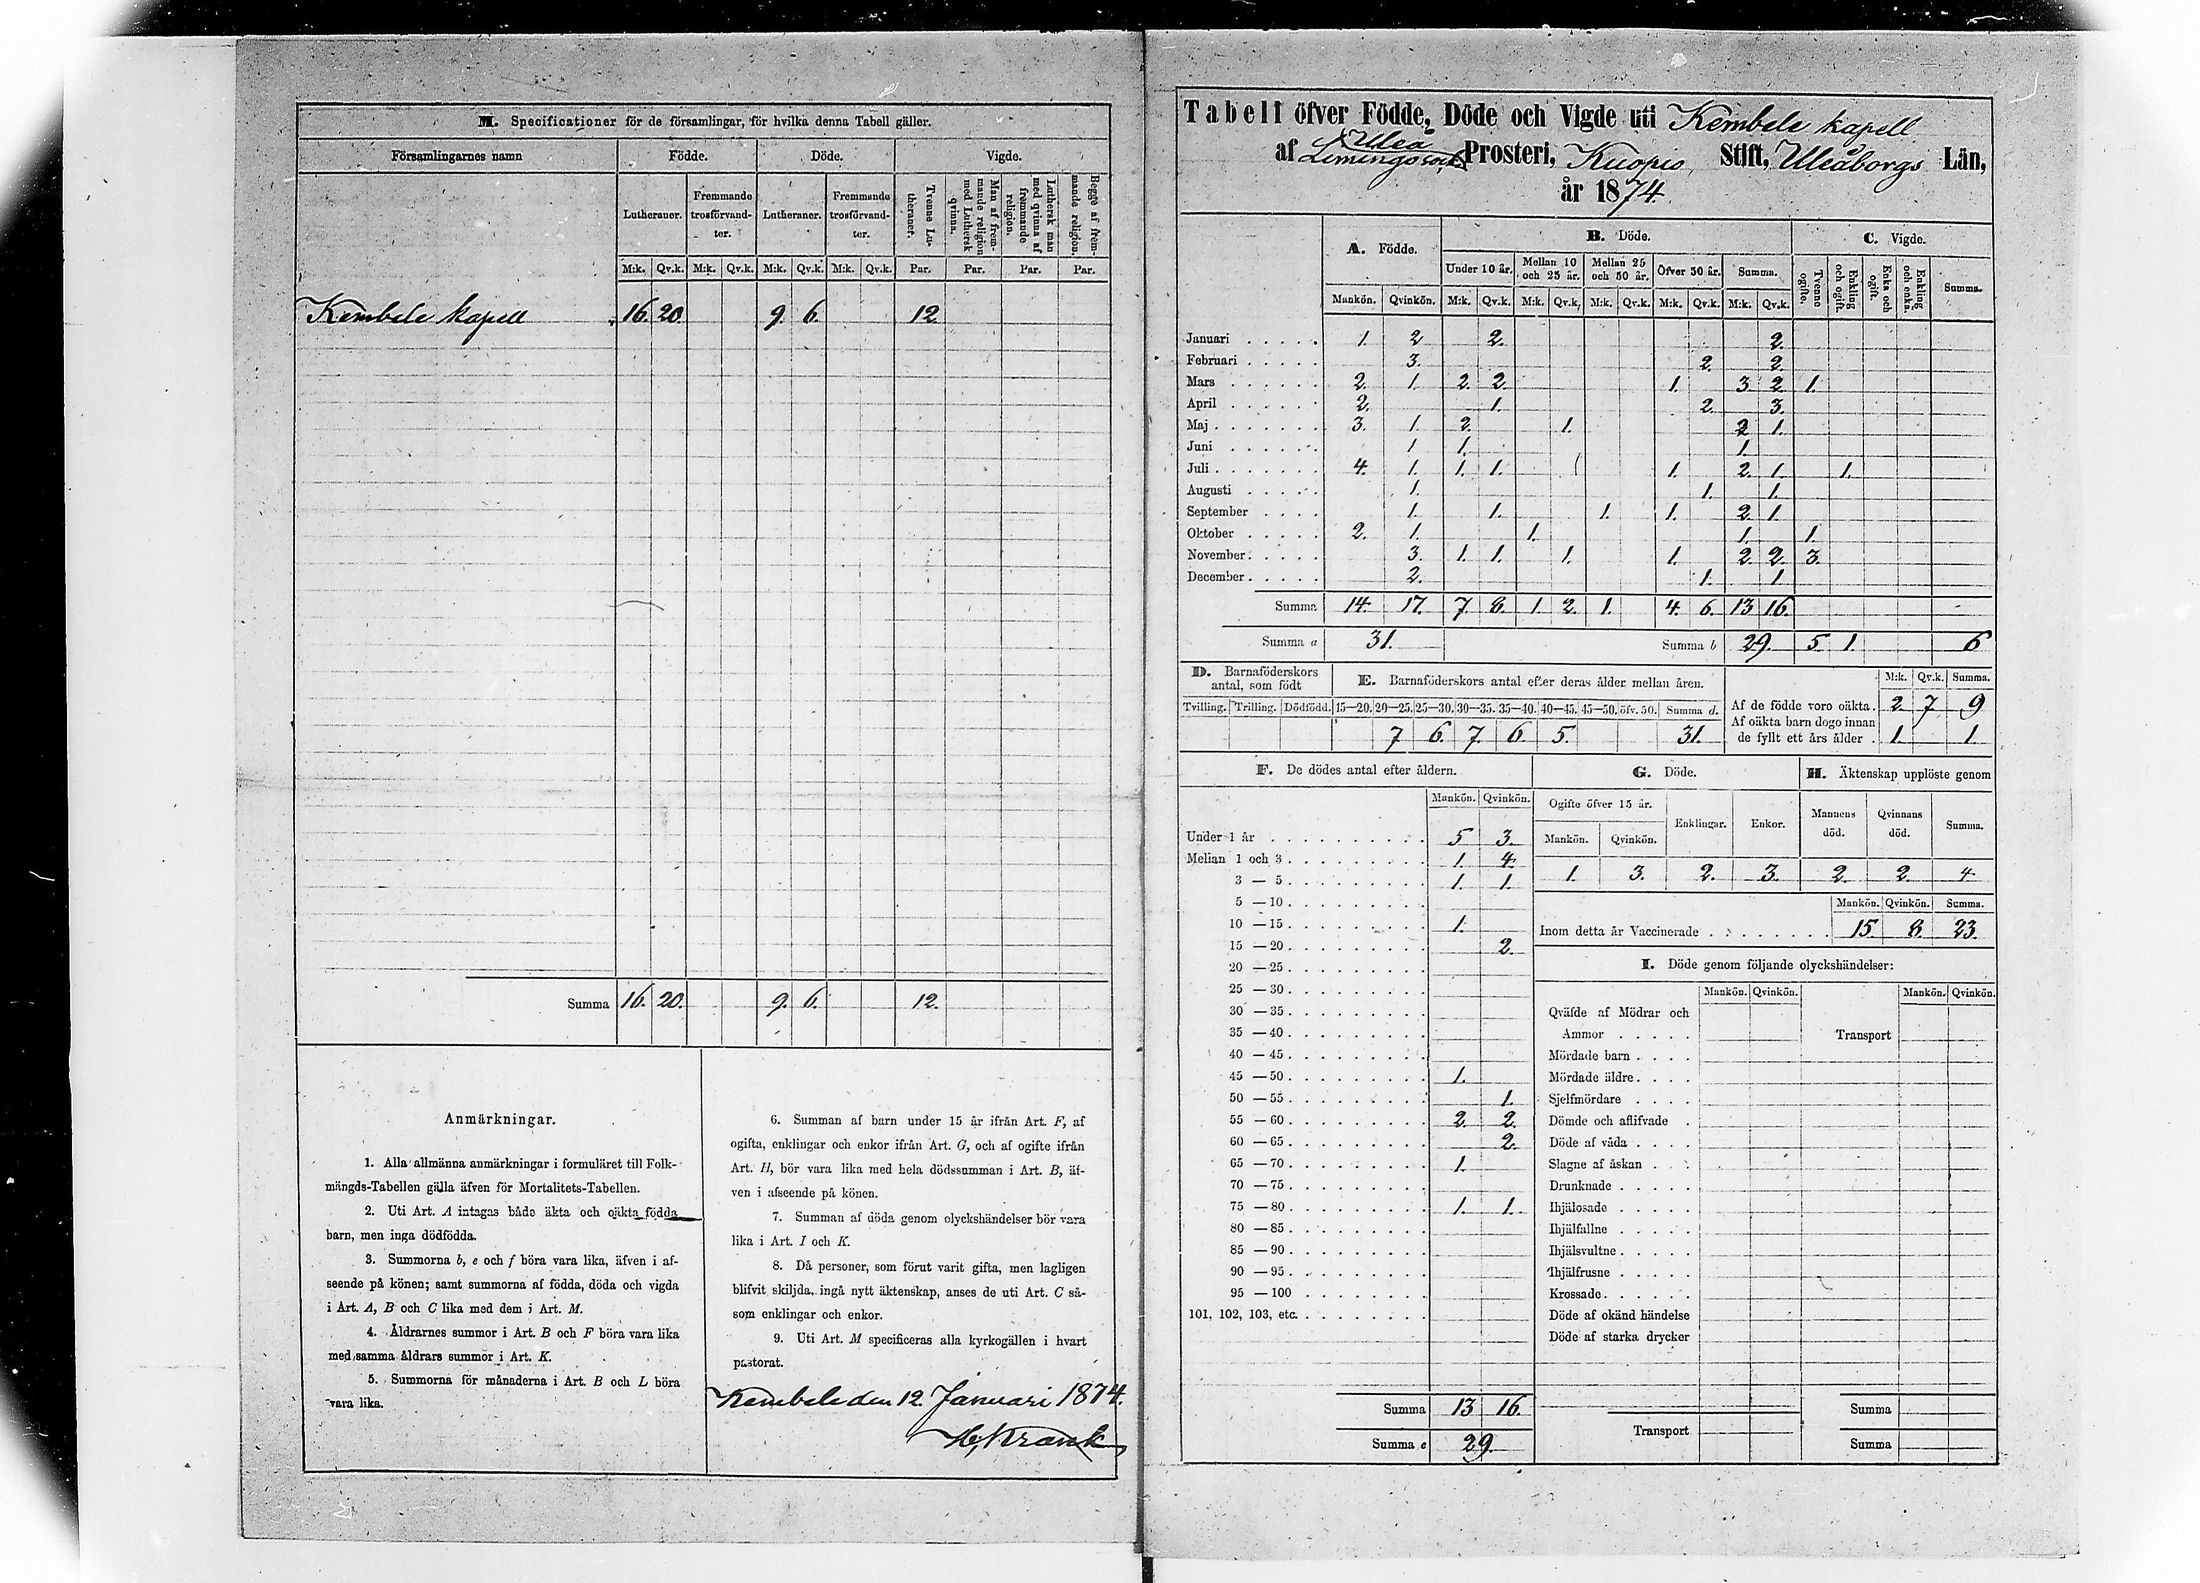 M. Specificationer för de församlingar, för hvilka denna Tabell gäller.
Församlingarnes namn Födde. Döde. Vigde.
Lutheraner. Fremmande trosförvandter. Lutheraner. Fremmande trosförvandter. Trenne Lutheraner. Man af fremmande religion med Luthersk qvinna. Luthersk man med qvinna af fremmande religion. Begge af fremmande religion.
M:k. Qv.k. M:k. Qv.k. M:k. Qv.k. M:k. Qv.k. Par. Par. Par. Par.
Kembele kapell 16. 20. 9. 6. 12.
Summa 16. 20. 9. 6. 12.
Anmärkningar.
1. Alla allmänna anmärkningar i formuläret till Folk-
mängds-Tabellen gälla äfven för Mortalitets-Tabellen.
2. Uti Art. A intagas både äkta och oäkta födda
barn, men inga dödfödda.
3. Summorna b, e och f böra vara lika, äfven i af-
seende på könen; samt summorna af födda, döda och vigda
i Art. A, B och C lika med dem i Art. M.
4. Åldrarnes summor i Art. B och F böra vara lika
med samma åldrars summor i Art. K.
5. Summorna för månaderna i Art. B och L böra
vara lika.
6. Summan af barn under 15 år ifrån Art. F, af
ogifta, enklingar och enkor ifrån Art. G, och af ogifte ifrån
Art. H, bör vara lika med hela dödssumman i Art. B, äf-
ven i afseende på könen.
7. Summan af döda genom olyckshändelser bör vara
lika i Art. I och K.
8. Då personer, som förut varit gifta, men lagligen
blifvit skiljda, ingå nytt äktenskap, anses de uti Art. C så-
som enklingar och enkor.
9. Uti Art. M specificeras alla kyrkogällen i hvart
pastorat.
Kembele den 12. Januari 1874.
Tabell öfver Födde, Döde och Vigde uti Kembele kapell
af Limingo Uleå Prosteri, Kuopio Stift, Uleåborgs Län,
år 1874.
A. Födde. B. Döde. C. Vigde.
Under 10 år. Mellan 10 och 25 år. Mellan 25 och 50 år. Öfver 50 år. Summa. Trenne ogifte. Enkling och ogift. Enka och ogift. Enkling och enka. Summa.
Mankön. Qvinkön. M:k. Qv.k. M:k. Qv.k. M:k. Qv.k. M:k. Qv.k. M:k. Qv.k.
Januari 1. 2 2. 2.
Februari 3. 2. 2.
Mars 2. 1. 2. 2. 1. 3. 2. 1.
April 2. 1. 2. 3.
Maj 3. 1. 2. 1. 2. 1.
Juni 1. 1. 1.
Juli 4. 1. 1. 1. 1. 2. 1. 1.
Augusti 1. 1. 1.
September 1. 1. 1. 1. 2. 1.
Oktober 2. 1. 1. 1. 1.
November 3. 1. 1. 1. 1. 2. 2. 3.
December 2. 1. 1.
Summa 14. 17. 7. 8. 1. 2. 1. 4. 6. 13 16.
Summa a 31. Summa b 29. 5. 1. 6
D. Barnaföderskors antal, som födt
Tvilling. Trilling. Dödfödd.
E. Barnaföderskors antal efter deras ålder mellan åren.
15—20. 20—25. 25—30. 30—35. 35—40. 40—45. 45—50. öfv. 50. Summa d.
7 6. 7. 6. 5. 31.
M:k. Qv.k. Summa.
Af de födde voro oäkta. 2. 7 9
Af oäkta barn dogo innan
de fyllt ett års ålder . 1. 1.
F. De dödes antal efter åldern.
Mankön. Qvinkön.
Under 1 år 5 3.
Mellan 1 och 3 1. 4.
3 — 5 1. 1.
5 — 10
10 — 15 1.
15 — 20 2.
20 — 25
25 — 30
30 — 35
35 — 40
40 — 45
45 — 50 1.
50 — 55 1.
55 — 60 2. 2.
60 — 65 2.
65 — 70 1.
70 — 75
75 — 80 1. 1.
80 — 85
85 — 90
90 — 95
95 — 100
101, 102, 103, etc.
Summa 13 16.
Summa e 29.
G. Döde.
Ogifte öfver 15 år. Enklingar. Enkor.
Mankön. Qvinkön.
1. 3. 2. 3.
H. Äktenskap upplöste genom
Mannens död. Qvinnans död. Summa.
2. 2. 4
Mankön. Qvinkön. Summa.
Inom detta år Vaccinerade 15. 8. 23.
I. Döde genom följande olyckshändelser:
Mankön. Qvinkön. Mankön. Qvinkön.
Qväfde af Mödrar och
Ammor Transport
Mördade barn
Mördade äldre
Sjelfmördare
Dömde och aflifvade
Döde af våda
Slagne af åskan
Drunknade
Ihjälosade
Ihjälfallne
Ihjälsvultne
Ihjälfrusne
Krossade
Döde af okänd händelse
Döde af starka drycker
Summa
Transport Summa